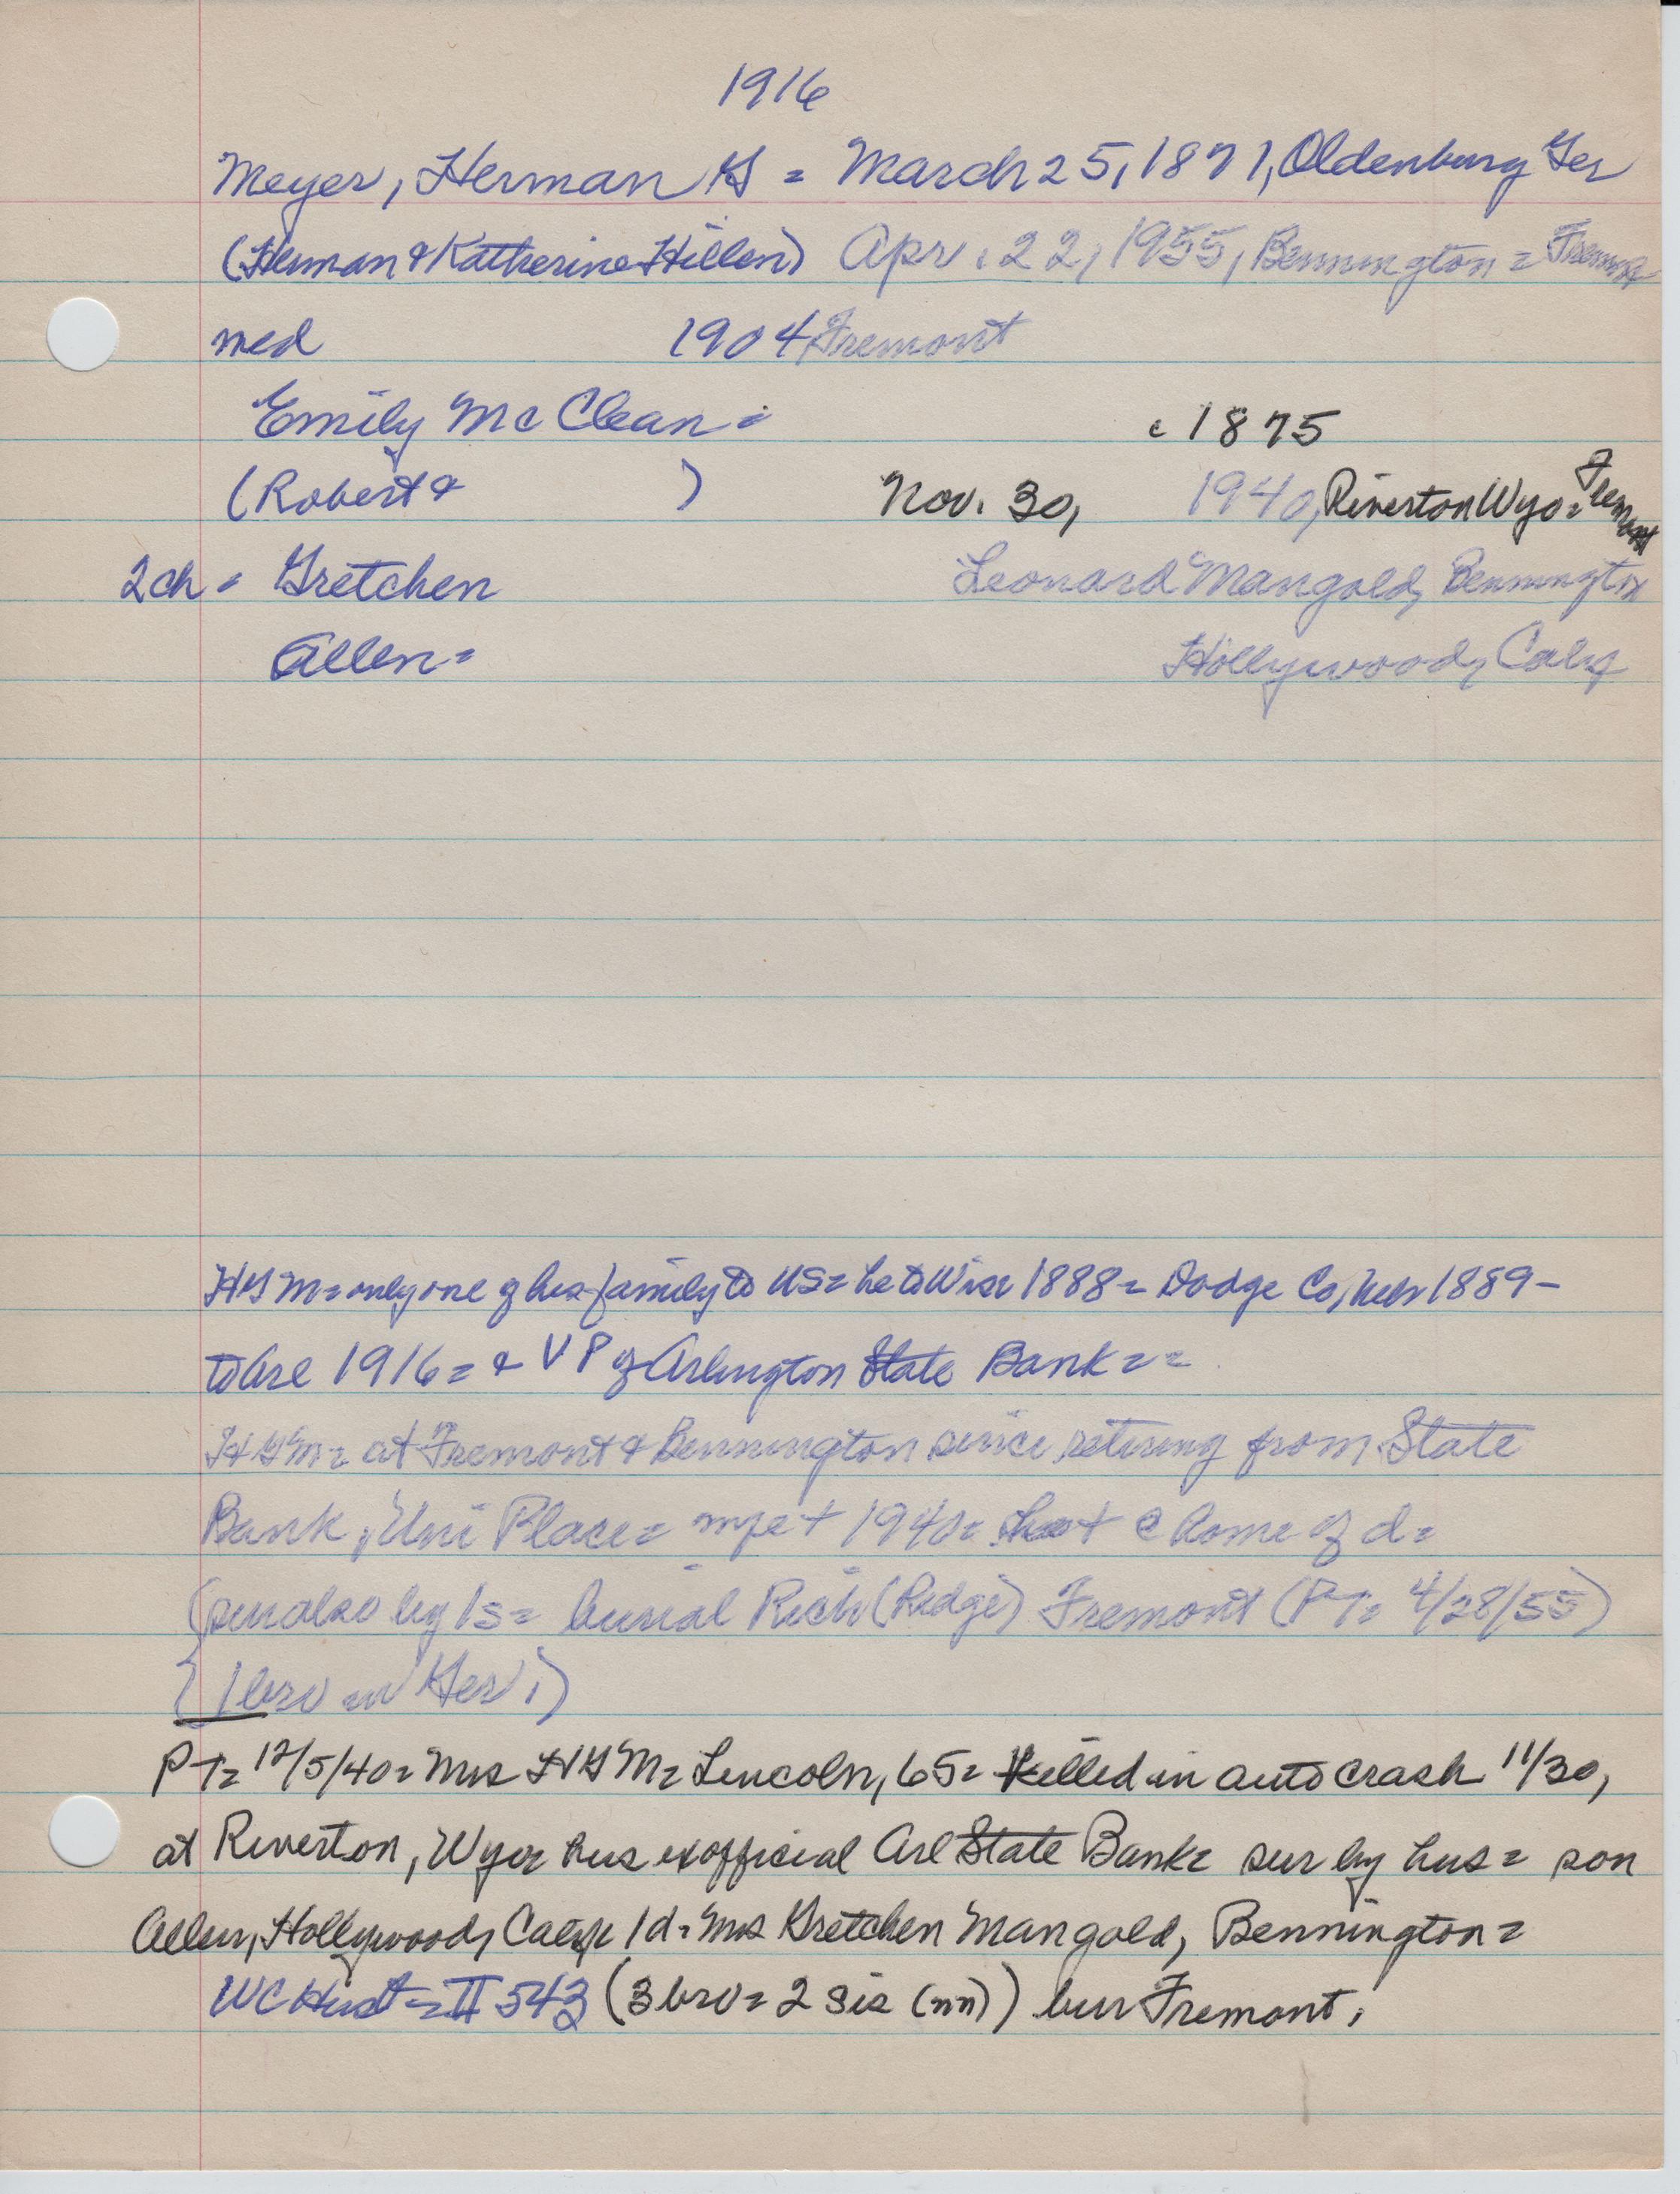 1916
Meyer, Herman G = March 25, 1871, Oldenburg Ger
(Herman & Katherine Hillen) Apr. 22, 1955, Bennington = Fremont
med 1904 Fremont
Emily McClean = c 1875
(Robert & ) Nov. 30, 1940, Riverton Wyo = Fremont
2ch = Gretchen Leonard Mangold, Bennington
Allen = Hollywood, Calif
HGM = only one of his family to US = he to Wisc 1888 = Dodge Co, Neb 1889 -
to Arl 1916 = & VP of Arlington State Bank = =
HGM = at Fremont & Bennington since retiring from State
Bank, Uni Place = wife + 1940 = he + @ home of d =
(sur also by 1s = burial Rich (Ridge) Fremont (PT = 4/28/55)
1 bro in Ger.)
PT = 12/5/40 = Mrs HGM = Lincoln, 65 = Killed in auto crash 11/30,
at Riverton, Wyo = hus exofficial Arl State Bank = sur by hus = son
Allen, Hollywood, Calif 1d = Mrs Gretchen Mangold, Bennington =
WC Hist = II 543 (3 bro = 2 sis (nn)) bur Fremont.